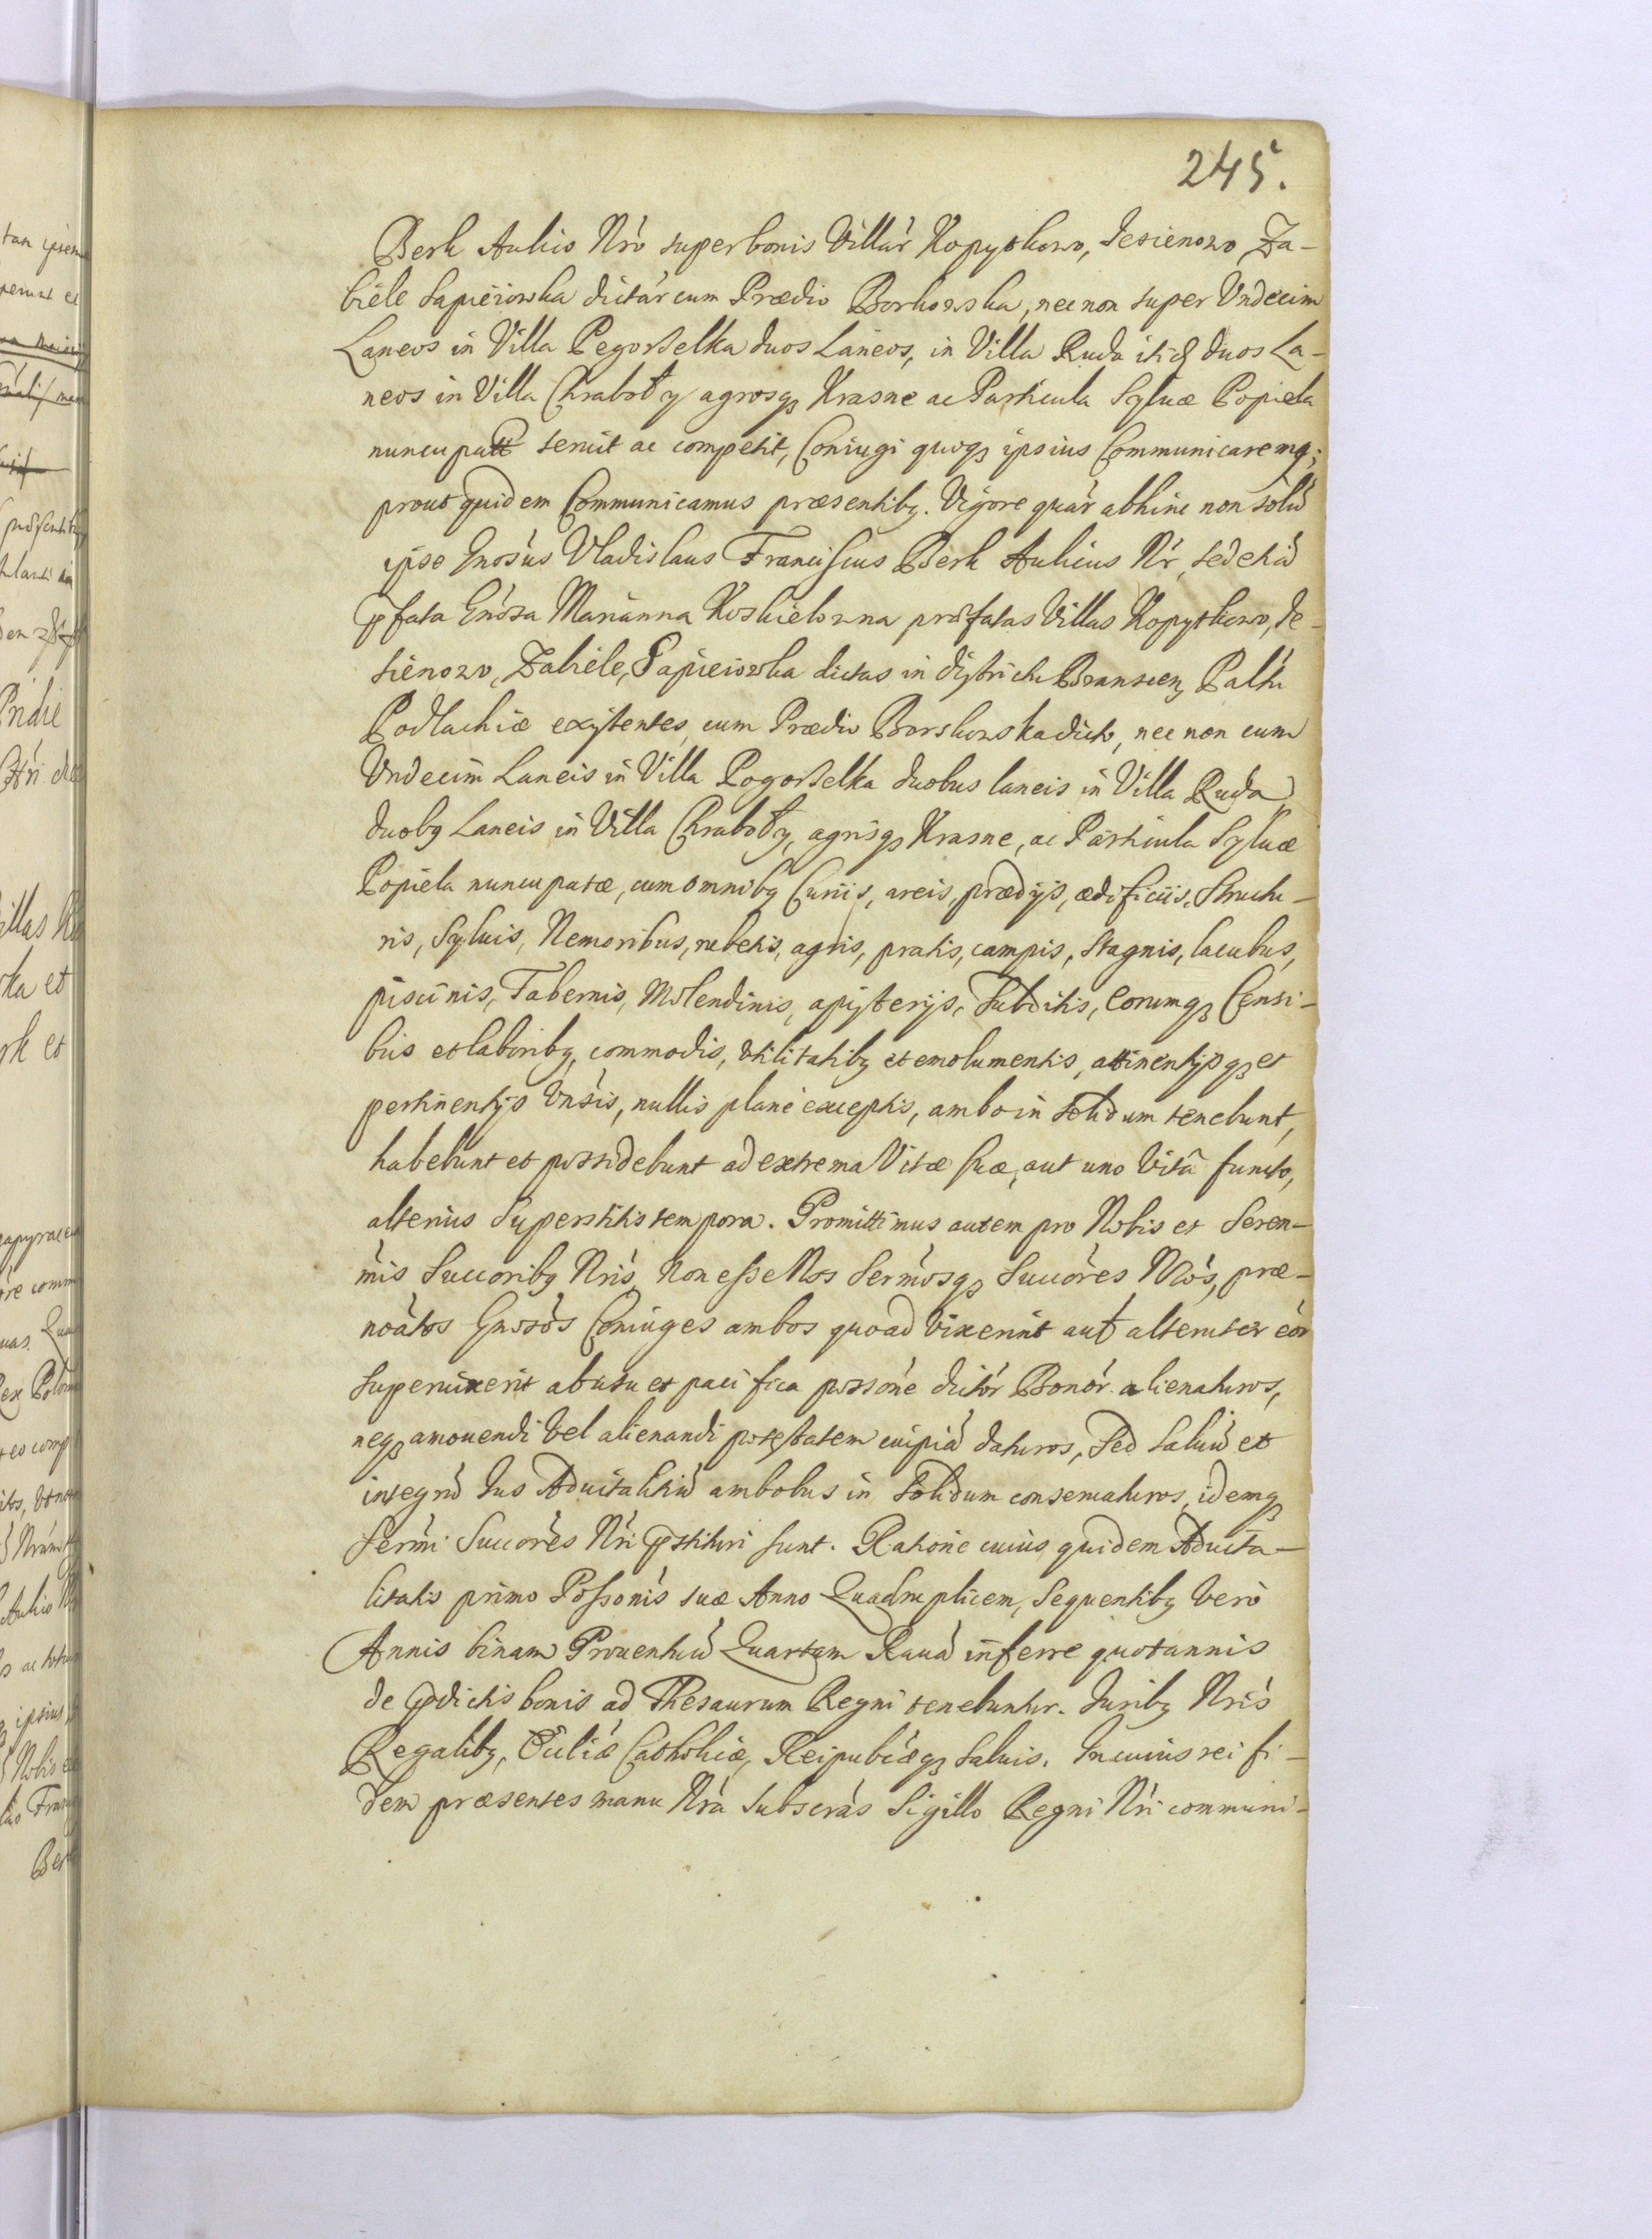 245.
Berk Aulico Nró super bonis Villár Kopytkowo, Jesienowo, Za-
biele Sapieiowska dictár cum Prædio Borkowska, nec non super Vndecim
Laneos in Villa Pegorzelka duos Laneos, in Villa Ruda itidꝫ duos La-
neos in Villa Chraboły agrosqꝫ Krasne ac Particula Syluæ Popiela
nuncupatæ seruit ac competit, Coniugi quoqꝫ ipsius Communicaremꝗ;
prout quidem Communicamus præsentibꝫ. Vigore quár abhinc non solú
ipse Gnosús Vladislaus Franciscus Berk Aulicus Nr, sed etiá
pfata Gnósa Marianna Koskielowna præfatas Villas Kopytkowo, Je-
sienowo, Zabiele, Sapieiowska dictas in districtu Branscen, Paltú
Podlachiæ existentes, cum Prædio Borskowska dicto, nec non cum
Vndecim Laneis in Villa Pogorzelka duobus laneis in Villa Ruda,
duobꝫ Laneis in Villa Chraboły, agrisqꝫ Krasne, ac Particula Syluæ
Popiela nuncupatæ, cum omnibꝫ Curiis, areis, prædijs, ædificiis, Structu-
ris, Syluis, Nemoribus, rubetis, agris, pratis, campis, Stagnis, lacubus,
piscinis, Tabernis, Molendinis, apisterijs, Subditis, Eorumqꝫ Censi-
bus et laboribꝫ, commodis, vtilitatibꝫ et emolumentis, attinentijsqꝫ et
pertinentijs Vnsis, nullis planè exceptis, ambo in solidum tenebunt,
habebunt et possidebunt ad extrema Vitæ suæ, aut uno Vitâ functo,
alterius Superstitis tempora. Promittimus autem pro Nobis et Seren-
mis Succoribꝫ Nrís, Non esse Nos Sermósqꝫ Succóres Nrós, præ-
noátos Gnosós Coniuges ambos quoad vixerint aut alteruter eór
superuixerit ab usu et pacifica possóne dictór Bonór alienaturos,
neqꝫ amouendi Vel alienandi potestatem cuipiá daturos, Sed saluú et
integrú Jus Aduitalitiú ambobus in solidum conseruaturos, idemqꝫ
Sermi Succóres Nri pstituri sunt. Ratione cuius quidem Aduita-
litatis primo Possonis suæ Anno Quadruplicem, Sequentibꝫ verò
Annis binam Prouentuú Quartam Rauá inferre quotannis
de pdictis bonis ad Thesaurum Regni tenebuntur. Juribꝫ Nris
Regalibꝫ, Ecliæ Catholicæ, Reipubcæqꝫ saluis. In cuius rei fi-
dem præsentes manu Nra Subscrás Sigillo Regni Nri communi-